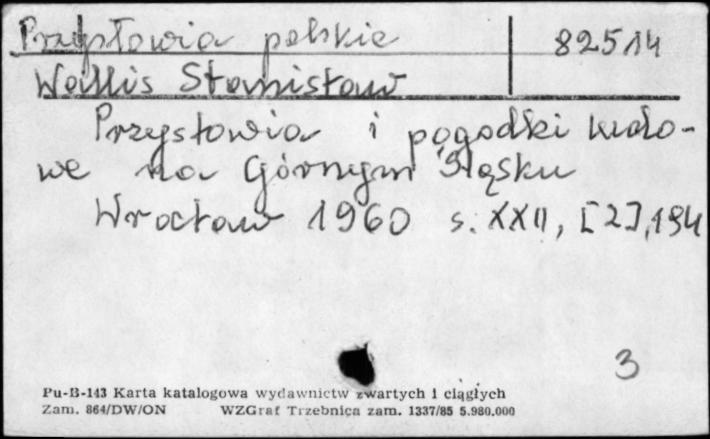 Przysłowia polskie 82514
Wallis Stanisław
Przysłowia i pogodki ludo-
we na Górnym Śląsku
Wrocław 1960 s. XXII, [2], 194
3
Pu-B-143 Karta katalogowa wydawnictw zwartych i ciągłych
Zam. 864/DW/ON WZGraf Trzebnica zam. 1337/85 5.980.000